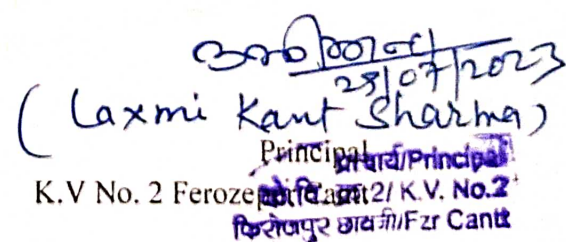 28/07/2023
(Laxmi Kant Sharma)
Principal
प्राचार्य/Principal
K.V No. 2 Ferozepur Cantt
के.वि. क्र.2/ K.V. No.2
फिरोजपुर छावनी/Fzr Cantt